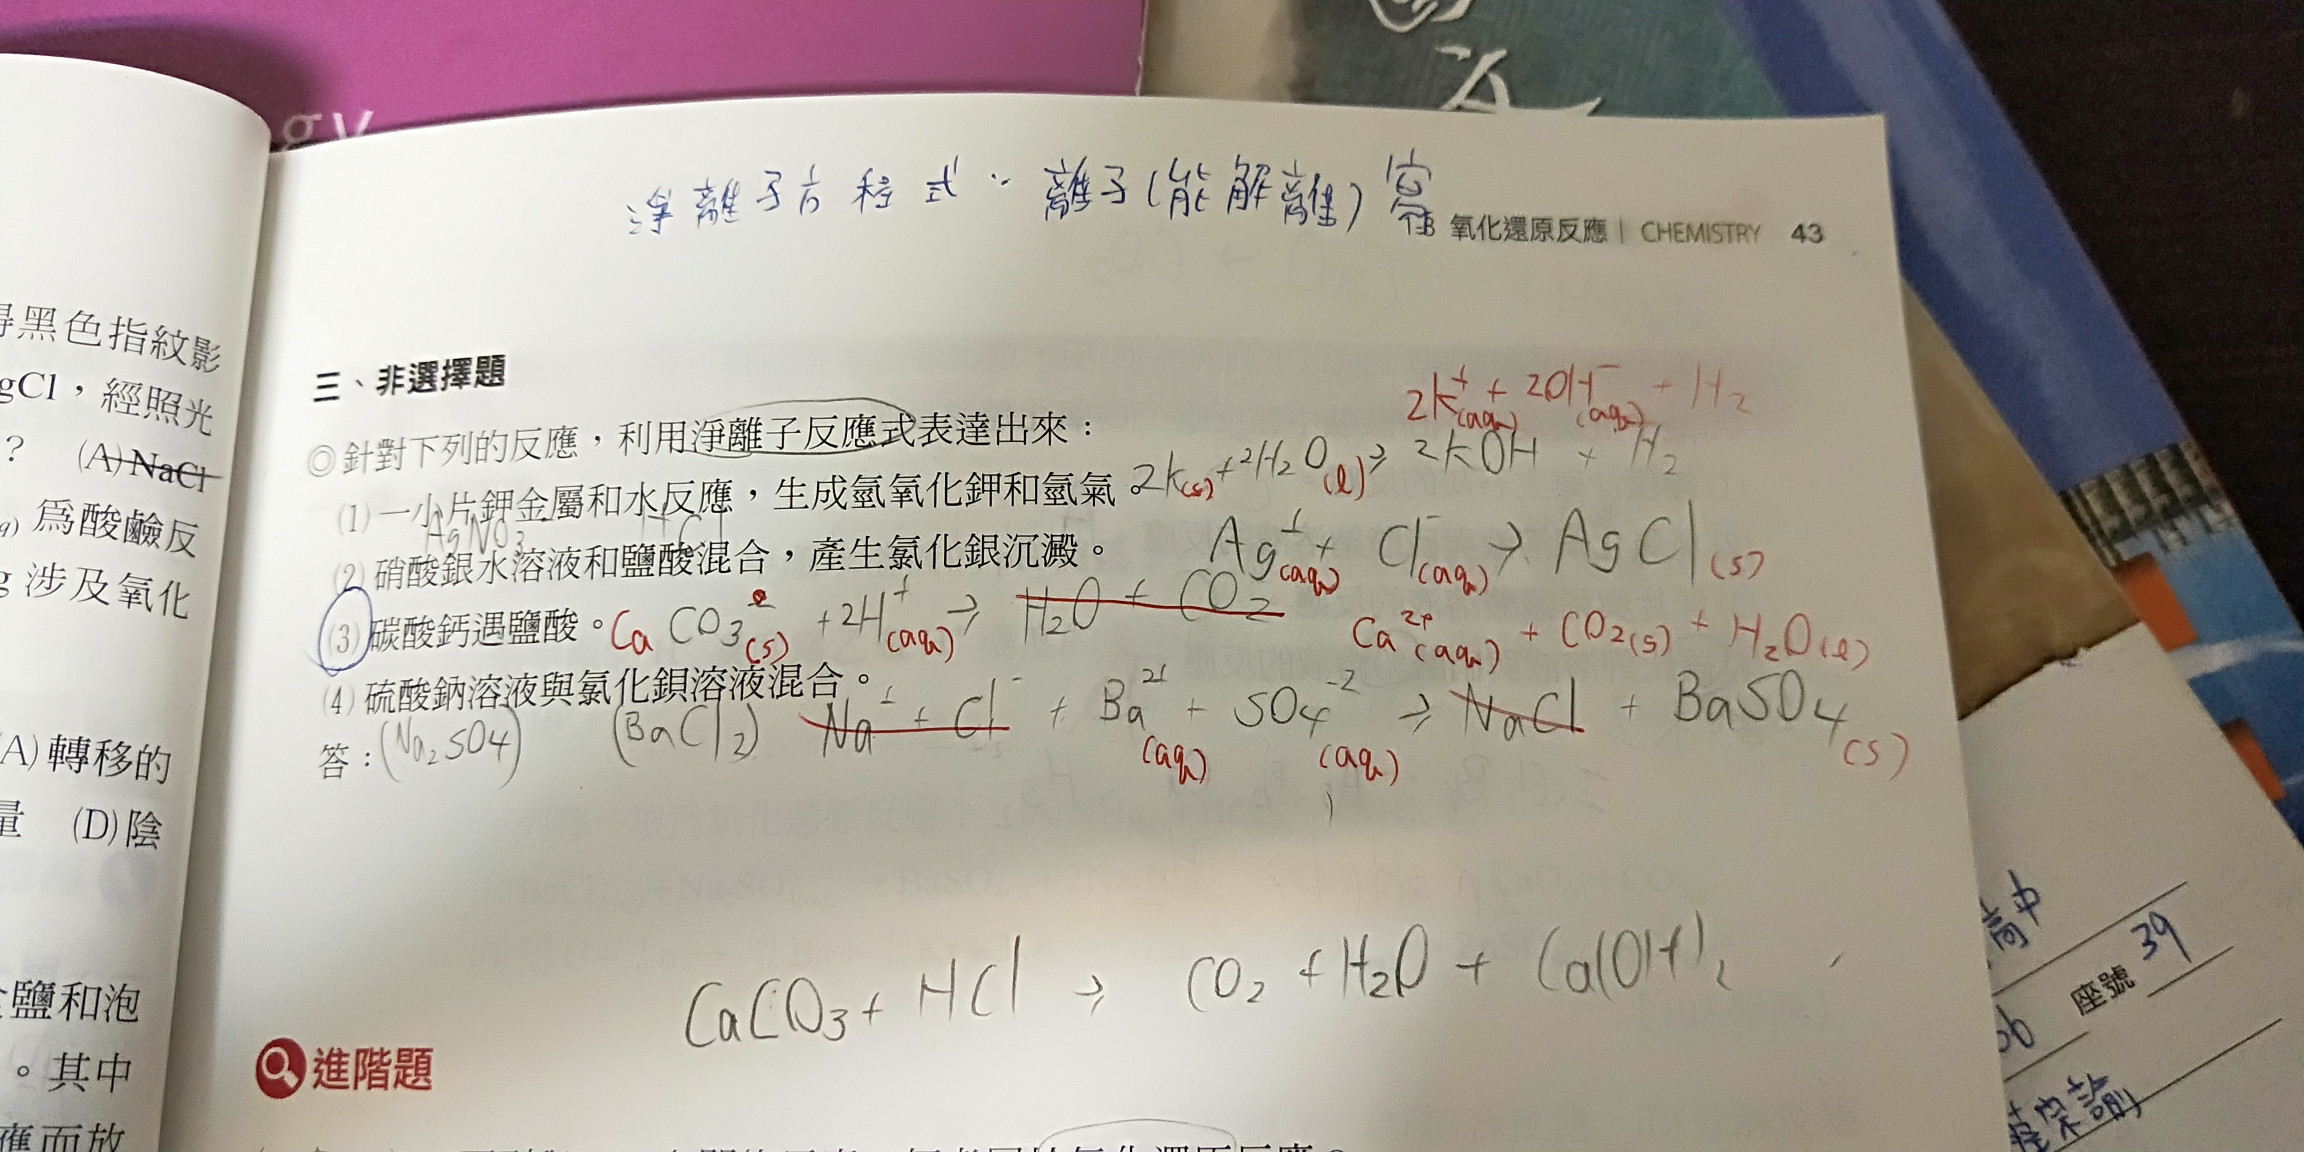 gy
淨離子方程式：離子(能解離)寫
氧化還原反應 | CHEMISTRY 43
得黑色指紋影
gCl，經照光
? (A) NaCl
爲酸鹼反
g 涉及氧化
(A)轉移的
量 (D)陰
鹽和泡
。其中
應而放
三、非選擇題
2K⁺(aq) + 2OH⁻(aq) + H₂
◎針對下列的反應，利用淨離子反應式表達出來：
(1)一小片鉀金屬和水反應，生成氫氧化鉀和氫氣。2K(s) + 2H₂O(l) → 2KOH + H₂
AgNO₃ HCl
(2)硝酸銀水溶液和鹽酸混合，產生氯化銀沉澱。 Ag⁺(aq) + Cl⁻(aq) → AgCl(s)
(3)碳酸鈣遇鹽酸。CaCO₃(s) + 2H⁺(aq) → H₂O + CO₂ Ca²⁺(aq) + CO₂(s) + H₂O(l)
(4)硫酸鈉溶液與氯化鋇溶液混合。
答：(Na₂SO₄) (BaCl₂) Na⁺ + Cl⁻ + Ba²⁺(aq) + SO₄⁻²(aq) → NaCl + BaSO₄(s)
CaCO₃ + HCl → CO₂ + H₂O + Ca(OH)₂
進階題
高中
座號 39